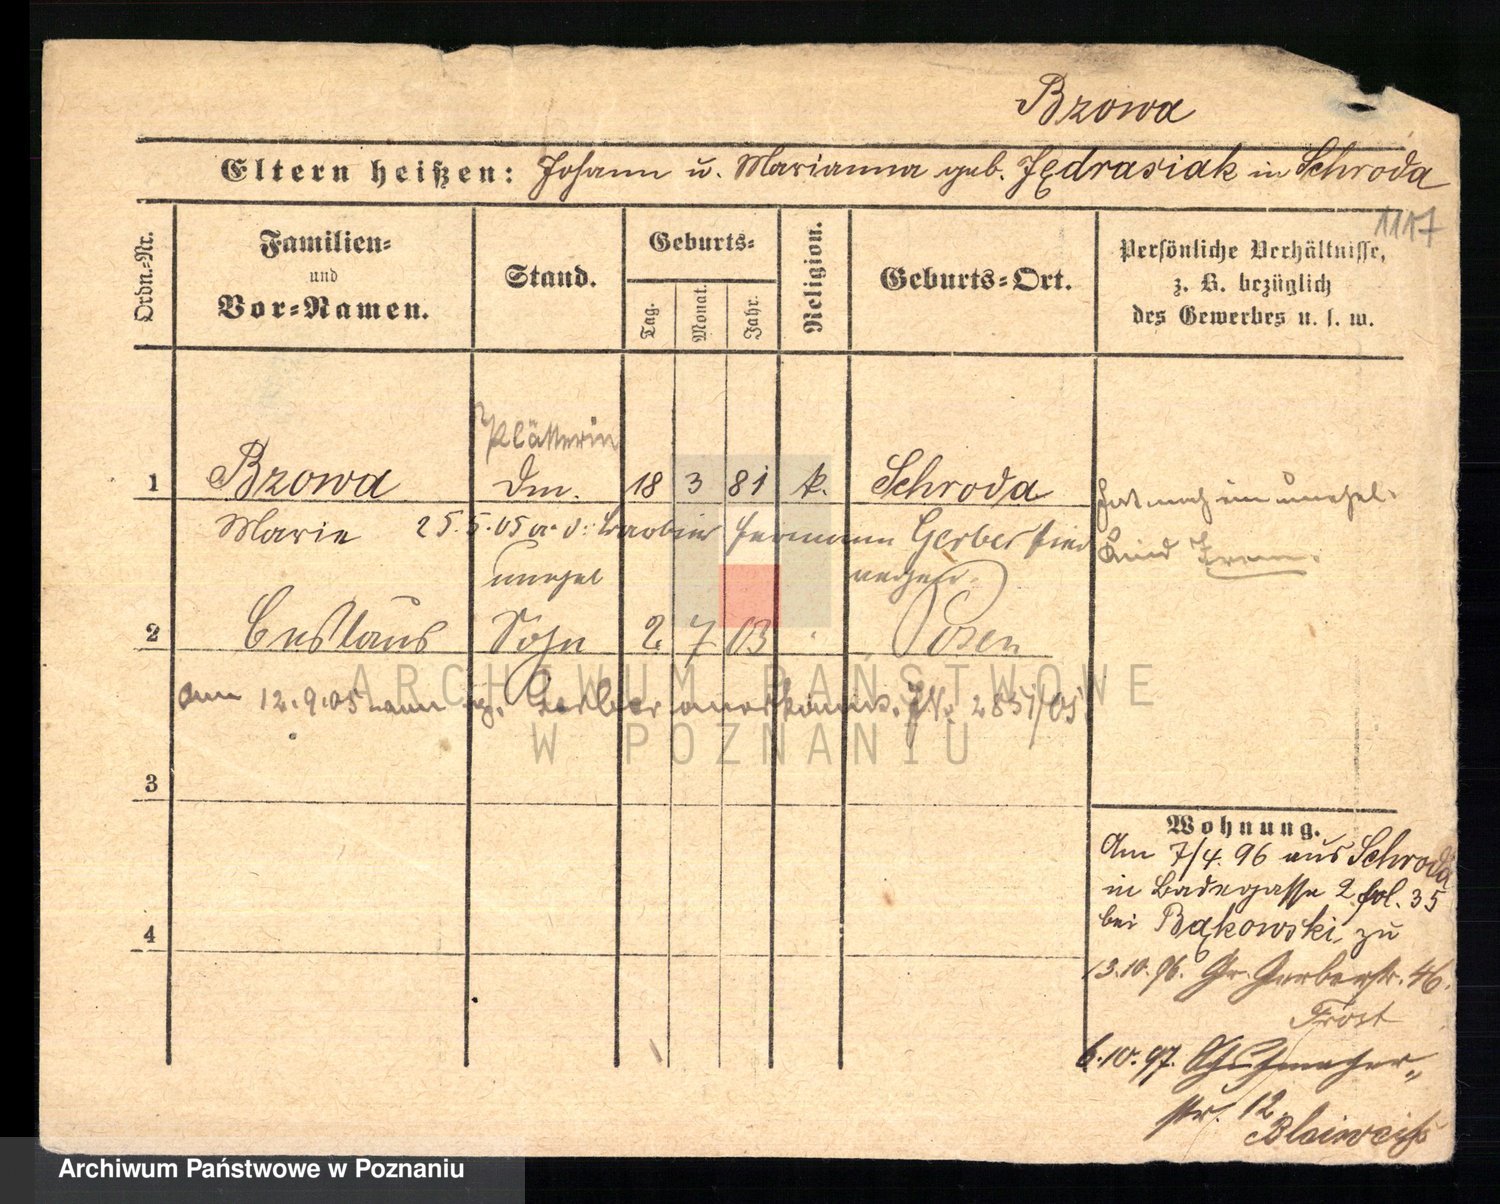 Bzowa
Eltern heißen: Johann u. Marianna geb. Jędrasiak in Schroda
1117
Ordn.-Nr.
Familien-
und
Vor-Namen.
Stand.
Geburts-
Tag.
Monat.
Jahr.
Religion.
Geburts-Ort.
Persönliche Verhältnisse,
z. B. bezüglich
des Gewerbes u. s. w.
Plätterin
1 Bzowa Dm. 18 3 81 k. Schroda
Marie 25.5.05 a. d. Barbier Hermann Gerber
hat noch ein unehel.
Kind
unehel
2 Sohn 2 7 03 Posen
am 12.9.05 Gerber 2851/05
ARCHIWUM PAŃSTWOWE
W POZNANIU
3
4
Wohnung.
Am 7/4. 96 aus Schroda
in Badegasse 2 fol. 35
bei Bąkowski, zu
13.10.96. Gr. Gerberstr. 46.
Frost
6.10.97.
str. 12
Bleiweiß
Archiwum Państwowe w Poznaniu